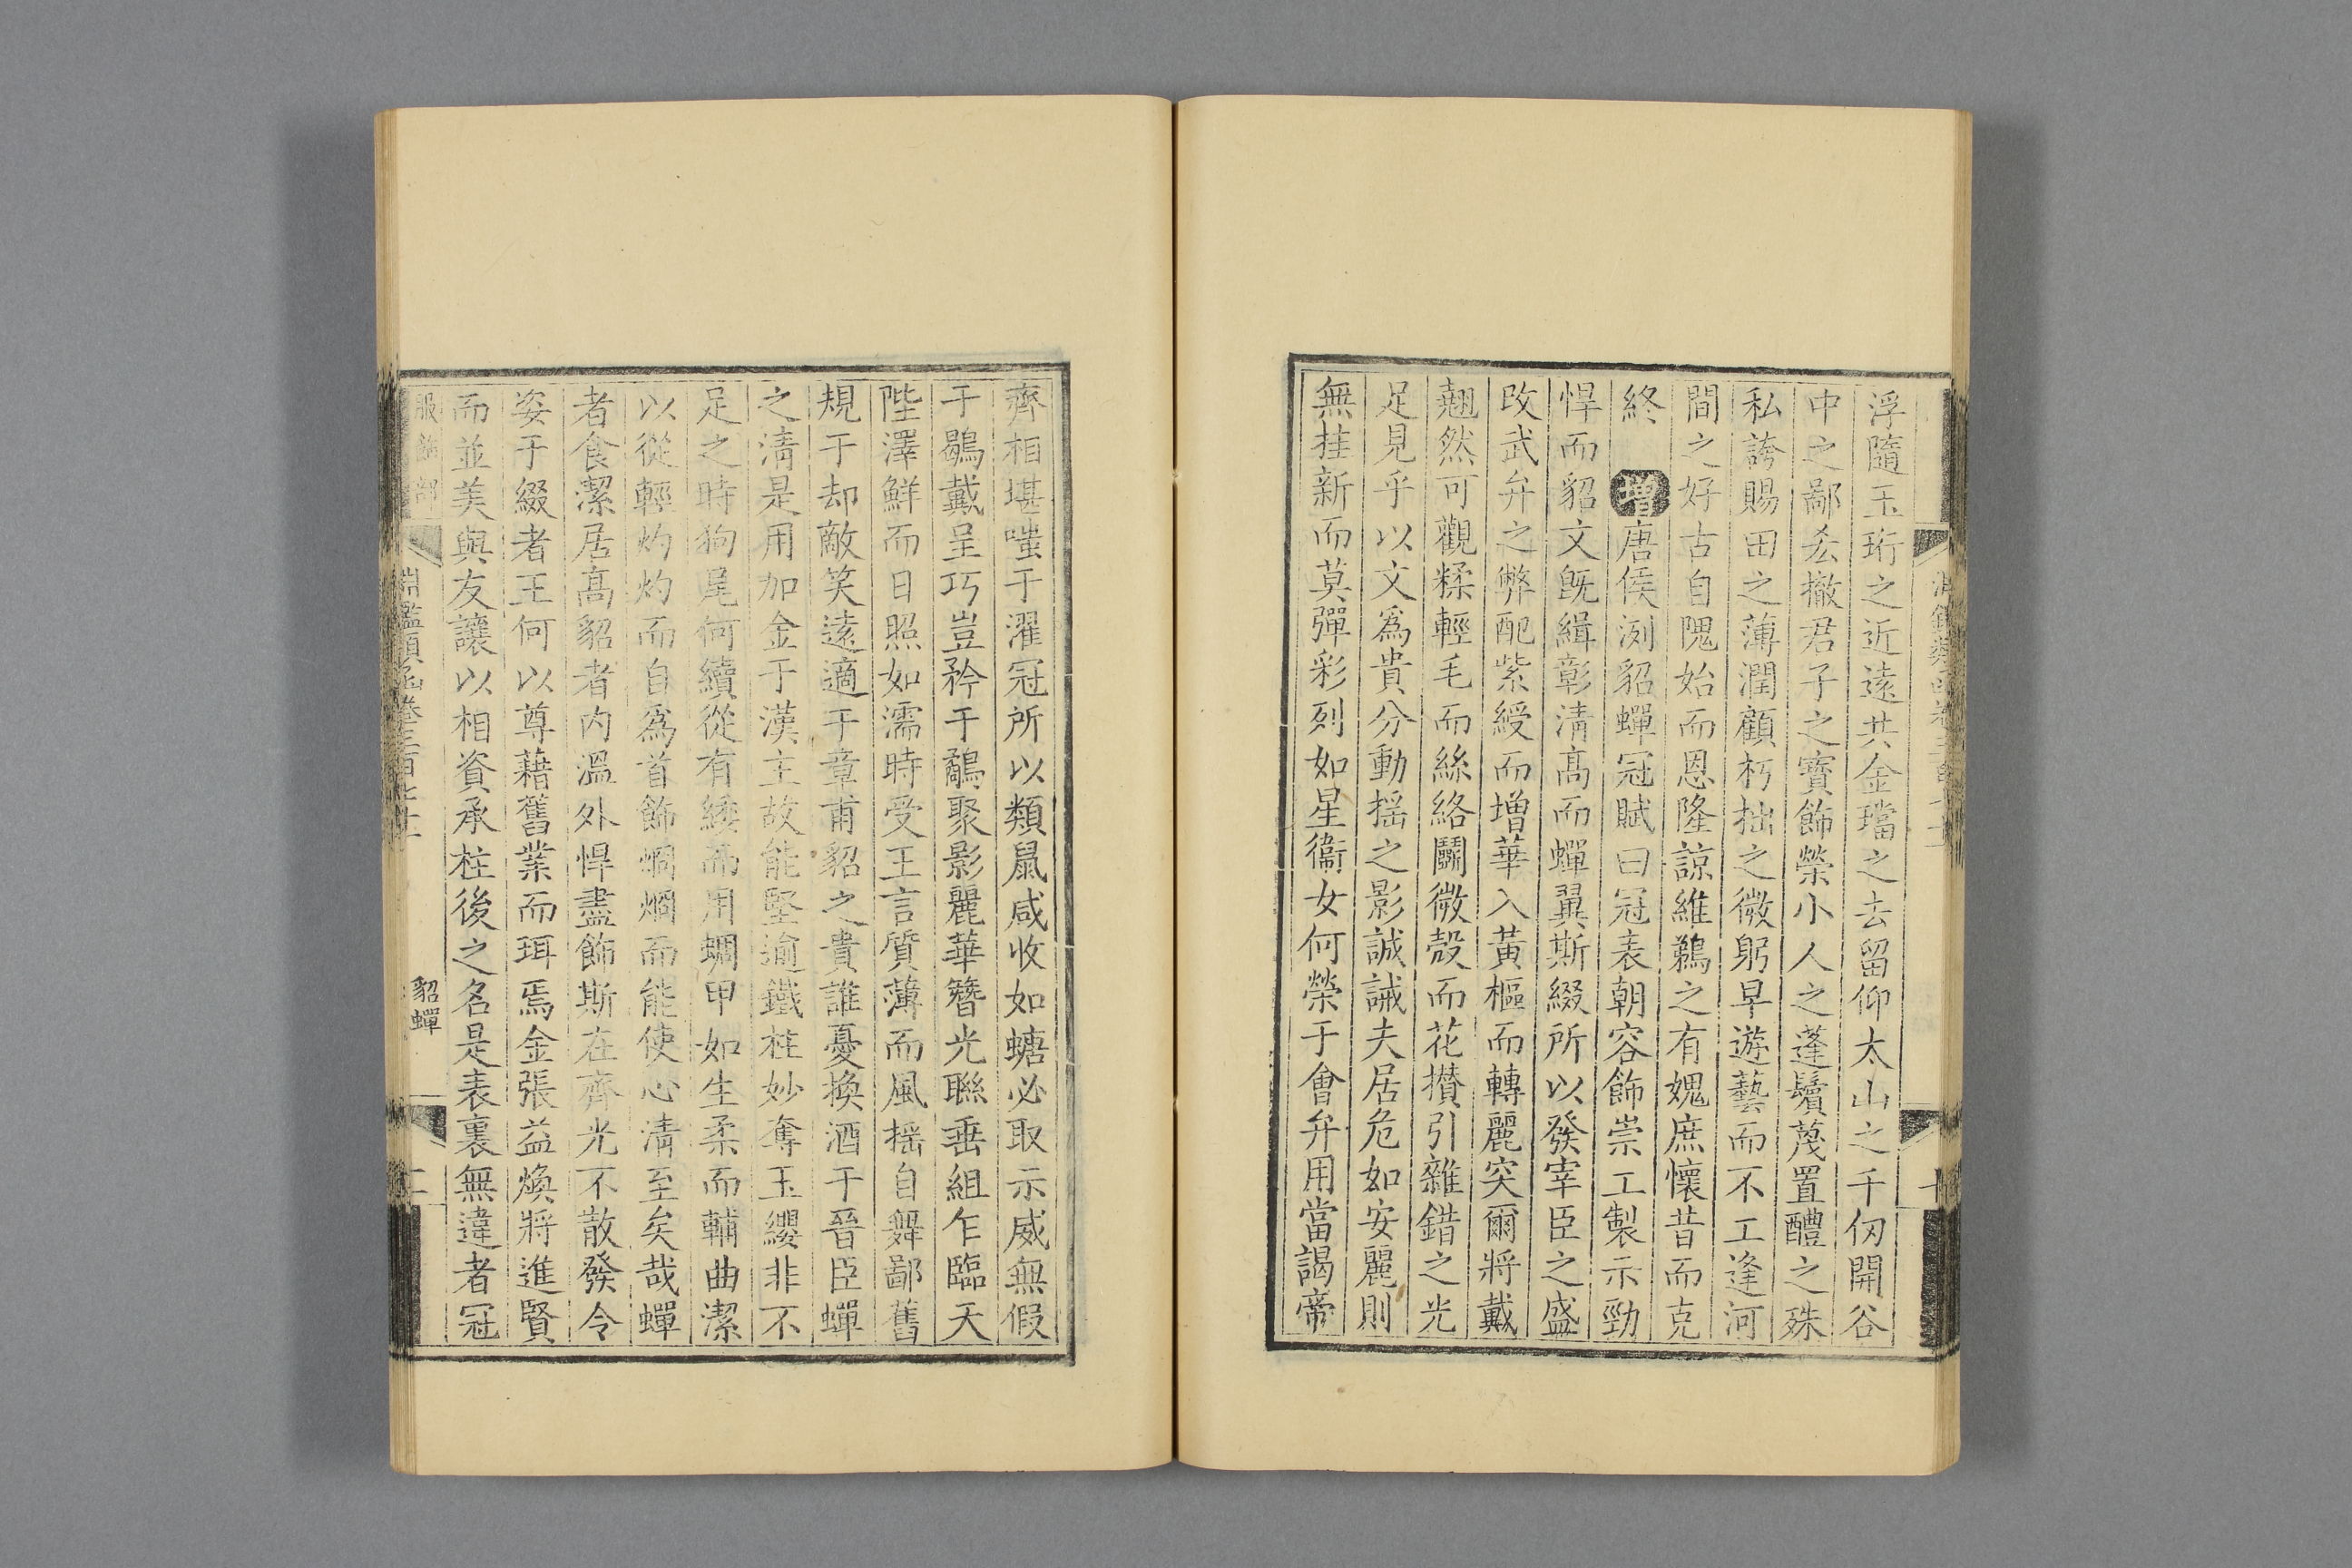 浮隨玉珩之近遠共金璫之去留仰太山之千仞開谷
中之鄙叅撤君子之寳飾榮小人之蓬鬢茂置醴之殊
私誇賜田之薄潤顧朽拙之微躬早遊藝而不工逢河
間之好古自隗始而恩隆諒維鵜之有媿庶懷昔而克
終 增唐侯洌貂蟬冠賦曰冠表朝容飾崇工製示勁
悍而貂文旣緝彰淸髙而蟬翼斯綴所以發宰臣之盛
改武弁之弊配紫綬而增華入黃樞而轉麗突爾將戴
翹然可觀糅輕毛而絲絡鬬微殻而花攅引雜錯之光
足見乎以文爲貴分動搖之影誠誡夫居危如安麗則
無挂新而莫彈彩列如星衞女何榮于會弁用當謁帝
齊相堪嗤于濯冠所以類鼠咸收如螗必取示威無假
于鶡戴呈巧豈矜于鷸聚影麗華簪光聯垂組乍臨天
陛澤鮮而日照如濡時受王言質薄而風搖自舞鄙舊
規于却敵笑逺適于章甫貂之貴誰憂換酒于晉臣蟬
之淸是用加金于漢主故能堅逾鐵柱妙奪玉纓非不
足之時狗尾何續從有緌而用蜩甲如生柔而輔曲潔
以從輕灼灼而自爲首飾烱烱而能使心淸至矣哉蟬
者食潔居髙貂者內溫外悍盡飾斯在齊光不散發令
姿于綴者王何以尊藉舊業而珥焉金張益煥將進賢
而並美與友讓以相資承柱後之名是表裏無違者冠
服飾部 淵鑑類函卷三百七十一 貂蟬 十一